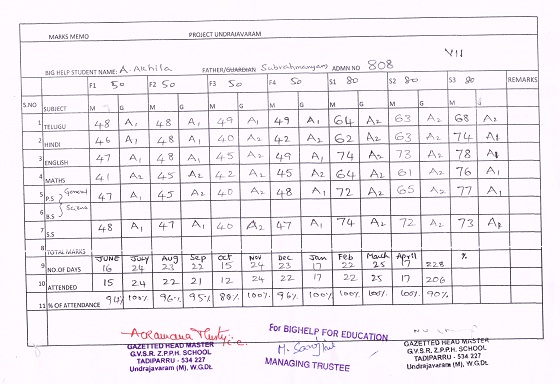 MARKS MEMO PROJECT UNDRAJAVARAM
VII
BIG HELP STUDENT NAME: A. Akhila FATHER/GUARDIAN Subrahmanyam ADMN NO 808
F1 50 F2 50 F3 50 F4 50 S1 80 S2 80 S3 80 REMARKS
S.NO SUBJECT M G M G M G M G M G M G M G
1 TELUGU 48 A1 48 A1 49 A1 49 A1 64 A2 63 A2 68 A2
2 HINDI 46 A1 48 A1 40 A2 42 A2 62 A2 63 A2 74 A1
3 ENGLISH 47 A1 48 A1 45 A2 49 A1 74 A1 73 A2 78 A1
4 MATHS 41 A2 45 A2 42 A2 45 A2 64 A2 61 A2 76 A1
5 P.S General 47 A1 45 A2 40 A2 48 A1 72 A2 65 A2 77 A1
6 B.S Science
7 S.S 48 A1 47 A1 40 A2 47 A1 74 A2 72 A2 73 A2
8 TOTAL MARKS JUNE July Aug Sep Oct Nov Dec Jan Feb March April %
9 NO.OF DAYS 16 24 23 22 15 24 23 17 22 25 17 228
10 ATTENDED 15 24 22 21 12 24 22 17 22 25 17 206
11 % OF ATTENDANCE 94% 100% 96% 95% 80% 100% 96% 100% 100% 100% 100% 90%
For BIGHELP FOR EDUCATION
MANAGING TRUSTEE
GAZETTED HEAD MASTER
G.V.S.R. Z.P.P.H. SCHOOL
TADIPARRU - 534 227
Undrajavaram (M), W.G.Dt.
GAZETTED HEAD MASTER
G.V.S.R. Z.P.P.H. SCHOOL
TADIPARRU - 534 227
Undrajavaram (M), W.G.Dt.